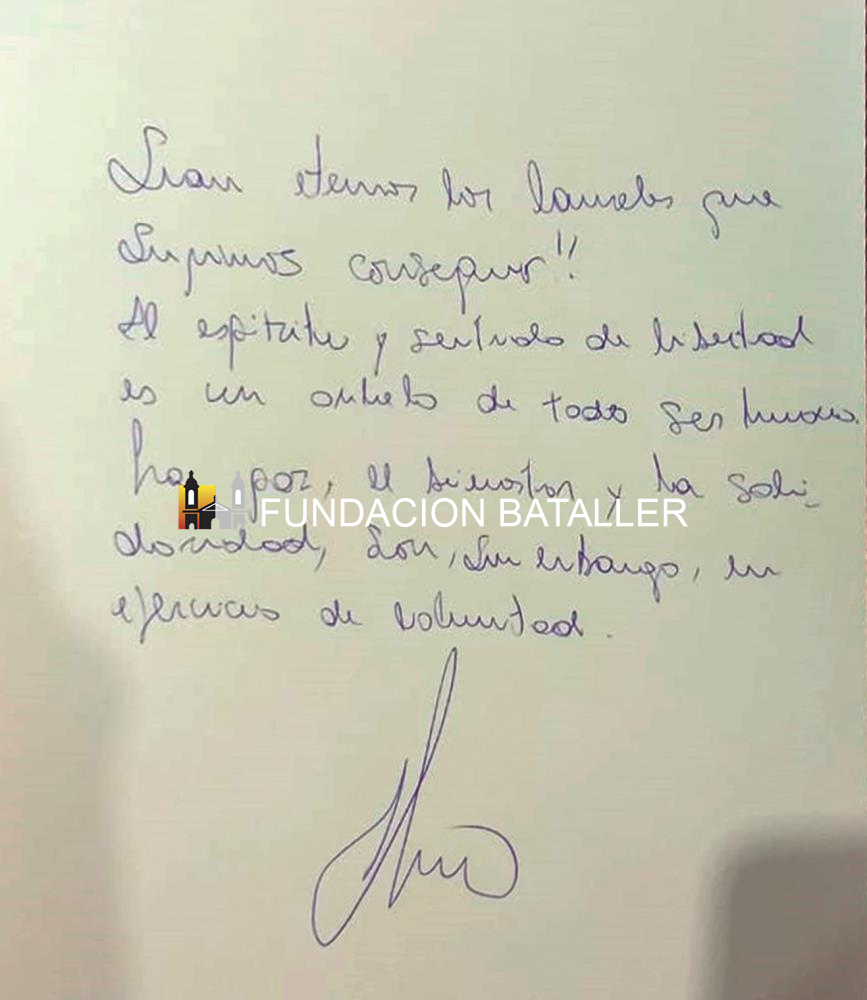 Sean eternos los laureles que
Supimos conseguir!!
El espíritu y sentido de libertad
es un anhelo de todo ser humano.
La paz, el bienestar y la soli-
FUNDACION BATALLER
daridad, son, sin embargo, un
ejercicio de voluntad.